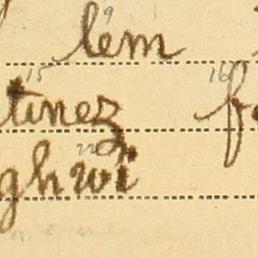 9
lem
15 16
tinez f
22
ghwi